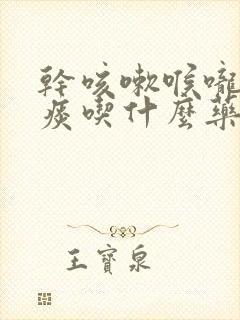 幹咳嗽喉嚨
痰喫什麼藥
王寶泉